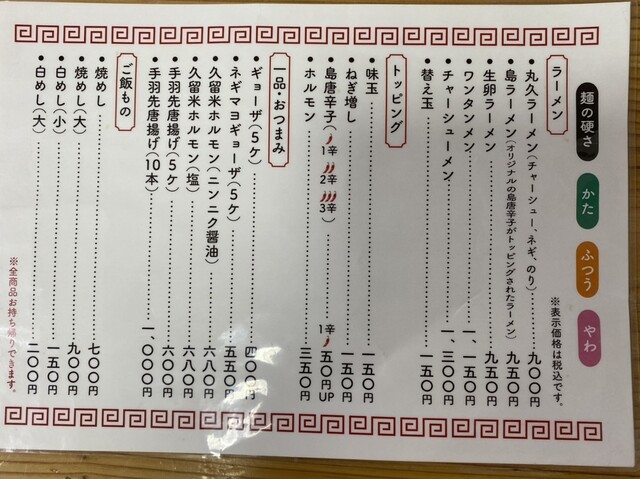 麺の硬さ
かた
ふつう
やわ
※表示価格は税込です。
ラーメン
・丸久ラーメン(チャーシュー、ネギ、のり)…九〇〇円
・島ラーメン(オリジナルの島唐辛子がトッピングされたラーメン)…九五〇円
・生卵ラーメン…九五〇円
・ワンタンメン…一、一五〇円
・チャーシューメン…一、三〇〇円
・替え玉…一五〇円
トッピング
・味玉…一五〇円
・ねぎ増し…一五〇円
・島唐辛子(1辛 2辛 3辛)…1辛 五〇円UP
・ホルモン…三五〇円
一品・おつまみ
・ギョーザ(5ケ)…四〇〇円
・ネギマヨギョーザ(5ケ)…五五〇円
・久留米ホルモン(ニンニク醤油)…六八〇円
・久留米ホルモン(塩)…六八〇円
・手羽先唐揚げ(5ケ)…六〇〇円
・手羽先唐揚げ(10本)…一、〇〇〇円
ご飯もの
・焼めし…七〇〇円
・焼めし(大)…九〇〇円
・白めし(小)…一五〇円
・白めし(大)…二〇〇円
※全商品お持ち帰りできます。